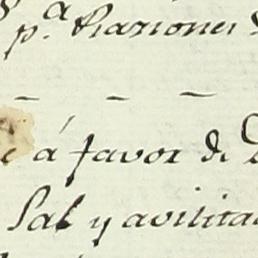 p.ª Raziones
á favor de
Sal y avilita